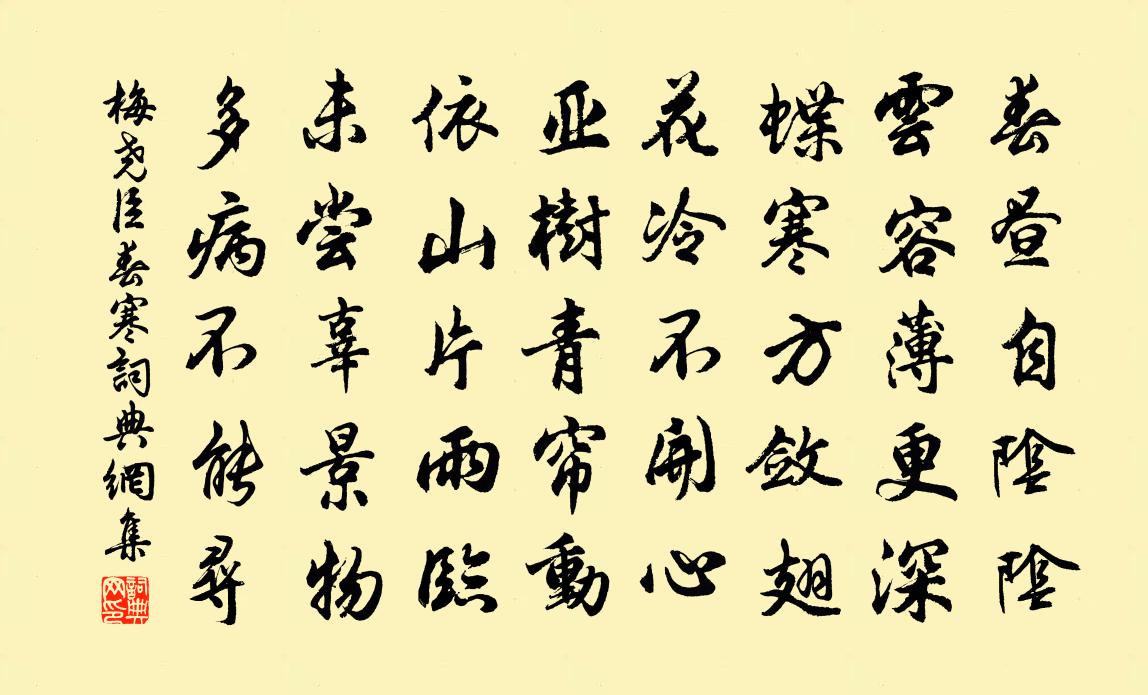 春昼自陰陰
雲容薄更深
蝶寒方斂翅
花冷不開心
亚樹青帘動
依山片雨臨
未尝辜景物
多病不能尋
梅堯臣春寒詞典網集
詞典網印